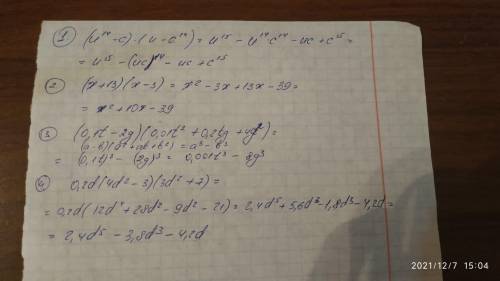 1 (u¹⁴-c)·(u-c¹⁴) = u¹⁵ - u¹⁴c¹⁴ - uc + c¹⁵ =
= u¹⁵ - (uc)¹⁴ - uc + c¹⁵
2 (x+13)(x-3) = x² - 3x + 13x - 39 =
= x² + 10x - 39
3 (0,1t - 2g)(0,01t² + 0,2tg + 4g²) =
(a-b)(a²+ab+b²) = a³-b³
= (0,1t)³ - (2g)³ = 0,001t³ - 8g³
4 0,2d(4d²-3)(3d²+7) =
= 0,2d(12d⁴ + 28d² - 9d² - 21) = 2,4d⁵ + 5,6d³ - 1,8d³ - 4,2d =
= 2,4d⁵ - 3,8d³ - 4,2d
2021/12/7 15:04